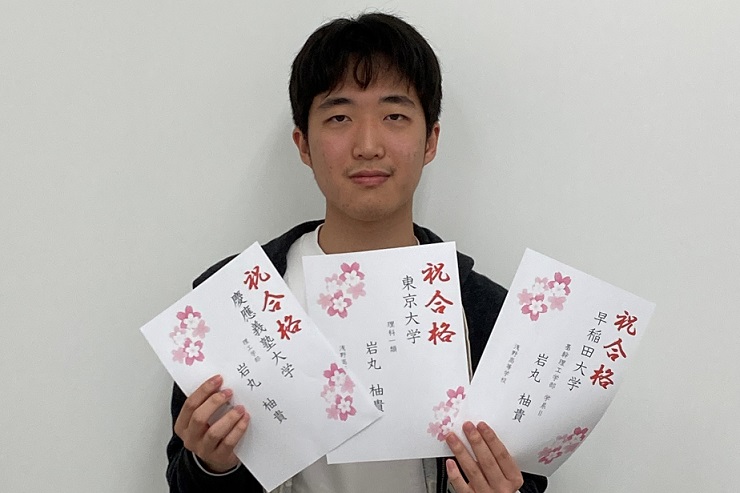 祝合格
慶應義塾大学
理工学部
岩丸 柚貴
祝合格
東京大学
理科一類
岩丸 柚貴
浅野高
祝合格
早稲田大学
基幹理工学部 学系Ⅱ
岩丸 柚貴
浅野高等学校